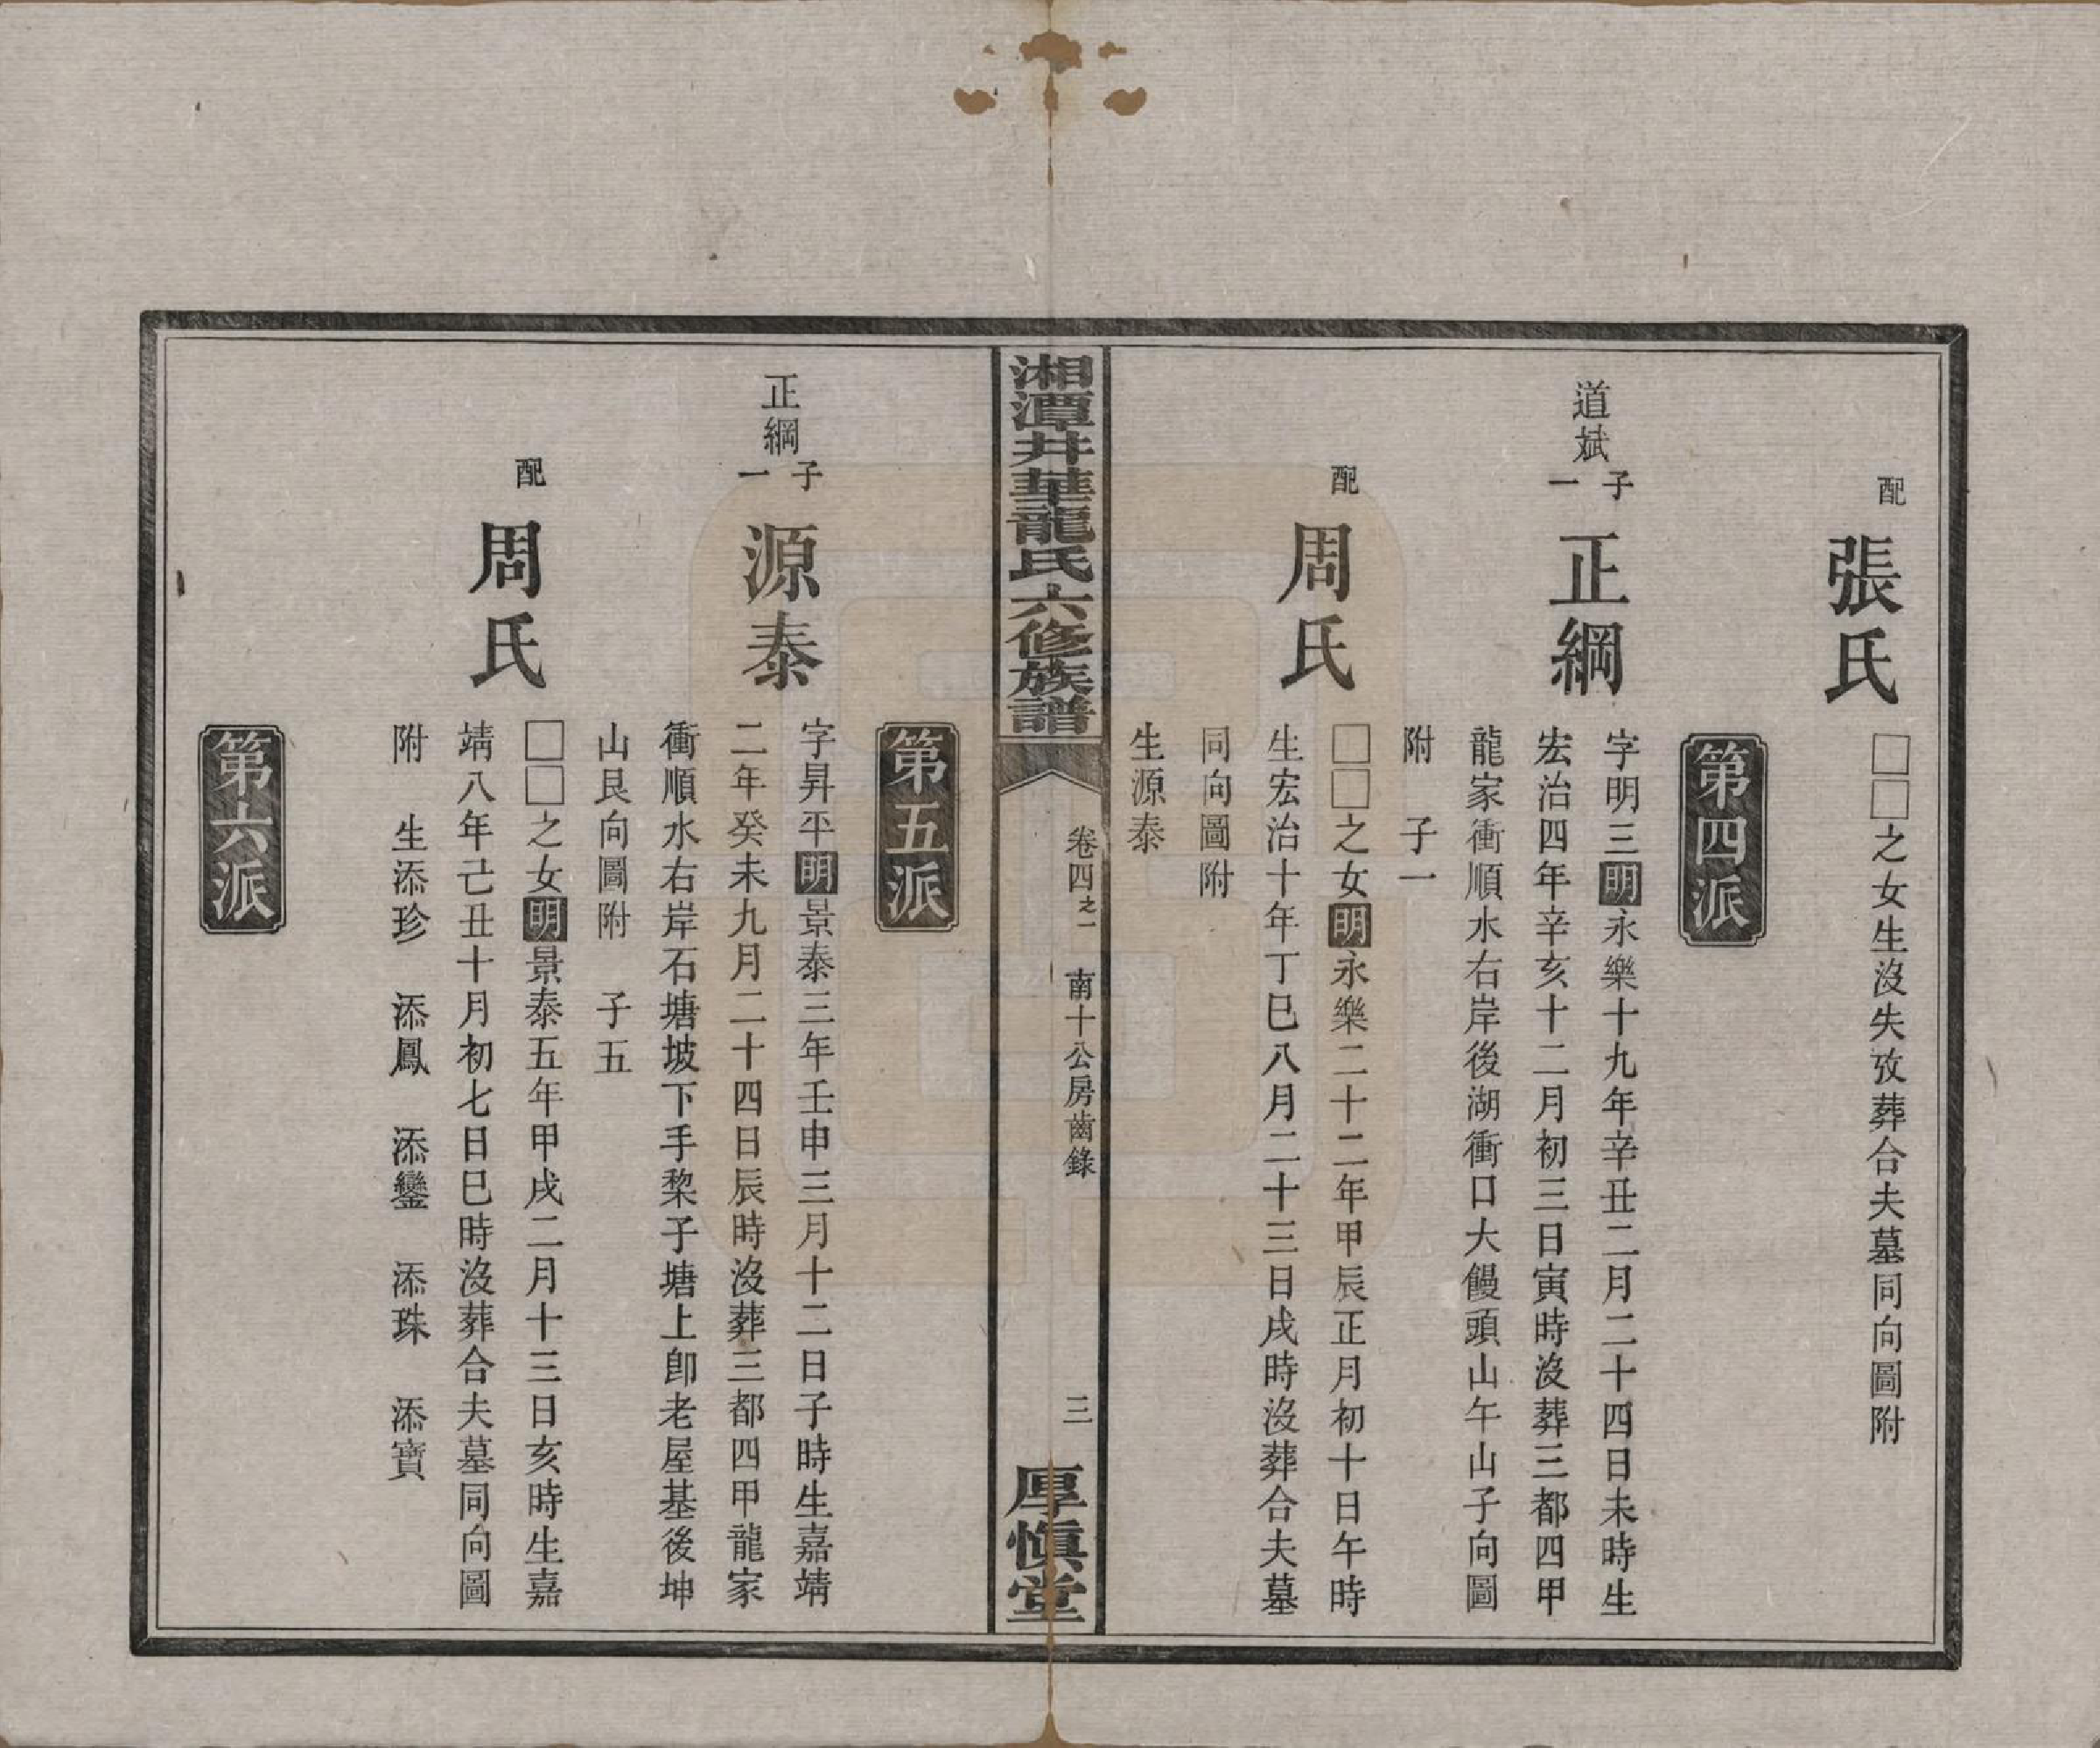 配
張氏
□□之女生沒失攷葬合夫墓同向圖附
第四派
道斌子一
正綱
字明三明永樂十九年辛丑二月二十四日未時生
宏治四年辛亥十二月初三日寅時沒葬三都四甲
龍家衝順水右岸後湖衝口大饅頭山午山子向圖
附 子一
配
周氏
□□之女明永樂二十二年甲辰正月初十日午時
生宏治十年丁巳八月二十三日戌時沒葬合夫墓
同向圖附
生源泰
湘潭井華龍氏六修族譜
卷四之一 南十公房齒錄
三
厚慎堂
第五派
正綱子一
源泰
字昇平明景泰三年壬申三月十二日子時生嘉靖
二年癸未九月二十四日辰時沒葬三都四甲龍家
衝順水右岸石塘坡下手棃子塘上卽老屋基後坤
山艮向圖附 子五
配
周氏
□□之女明景泰五年甲戌二月十三日亥時生嘉
靖八年己丑十月初七日巳時沒葬合夫墓同向圖
附 生添珍 添鳳 添鑾 添珠 添寶
第六派